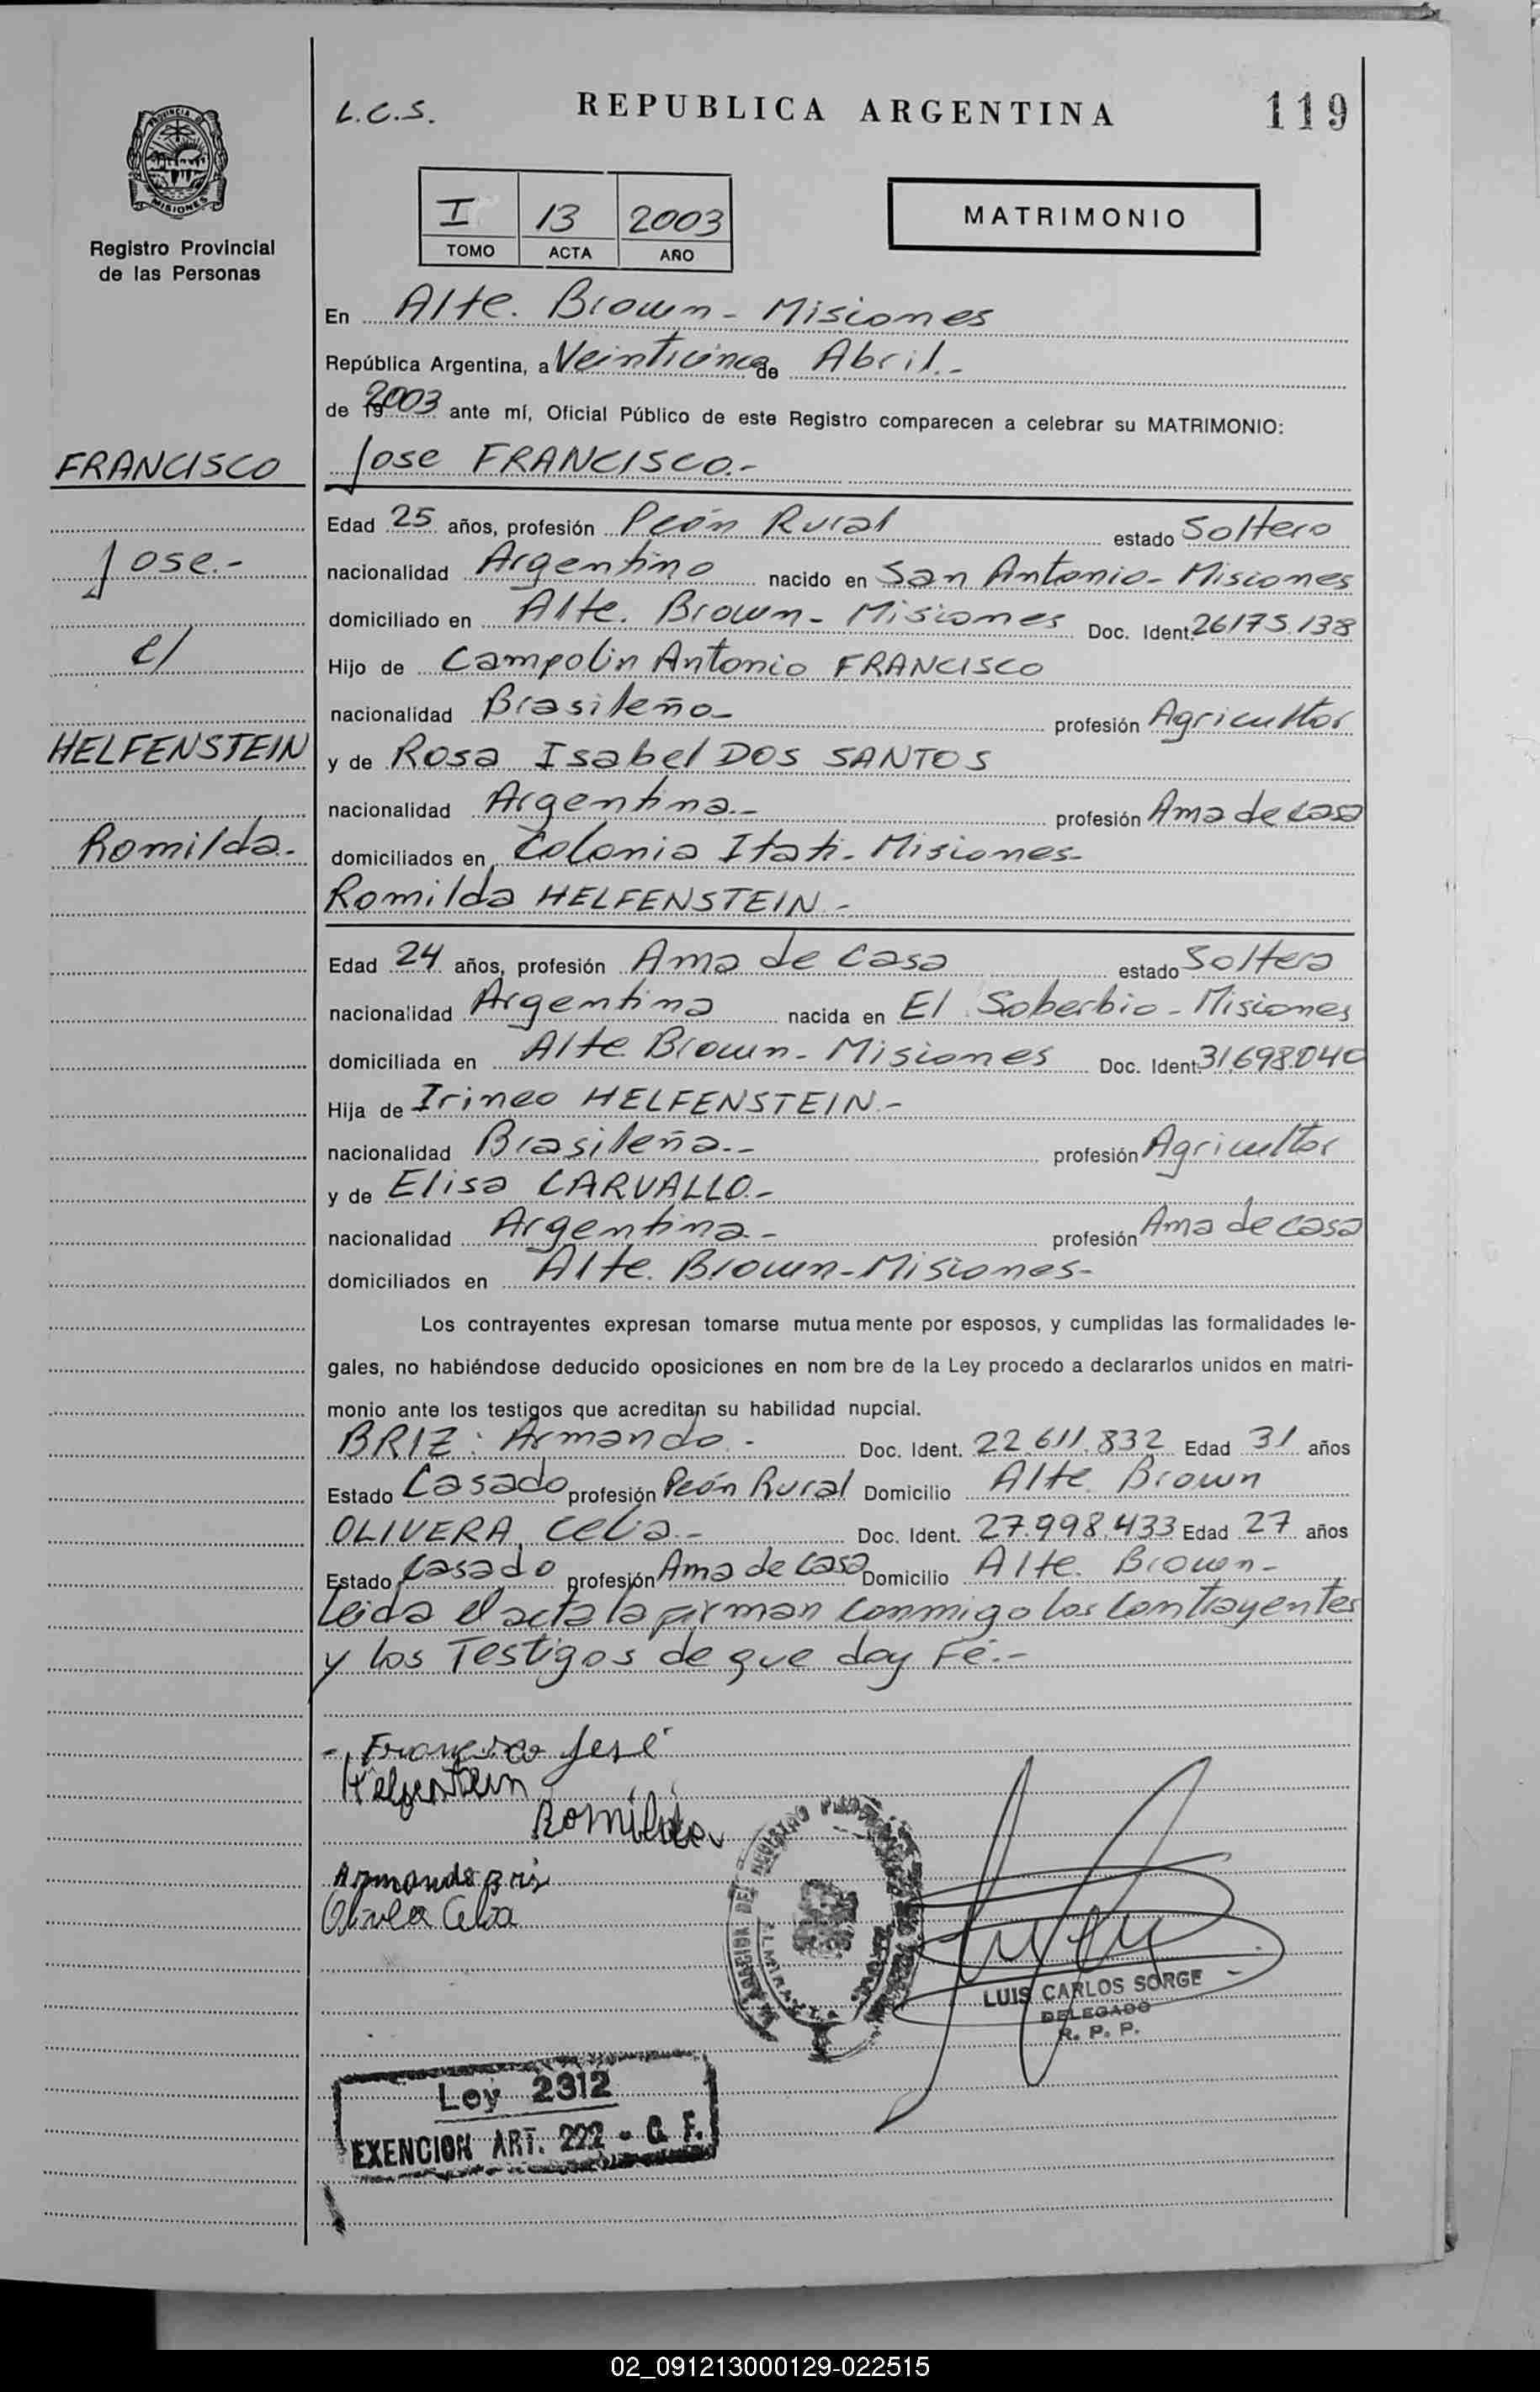 L.C.S.
REPUBLICA ARGENTINA
119
PROVINCIA D
MISIONES
Registro Provincial
de las Personas
I 13 2003
TOMO ACTA AÑO
MATRIMONIO
En Alte. Brown - Misiones
República Argentina, a Veinticinco de Abril.-
de 19 2003 ante mí, Oficial Público de este Registro comparecen a celebrar su MATRIMONIO:
FRANCISCO
Jose.-
c/
HELFENSTEIN
Romilda.-
Jose FRANCISCO.-
Edad 25 años, profesión Peón Rural estado Soltero
nacionalidad Argentino nacido en San Antonio - Misiones
domiciliado en Alte. Brown - Misiones Doc. Ident. 26175.138
Hijo de Campolin Antonio FRANCISCO
nacionalidad Brasileño- profesión Agricultor
y de Rosa Isabel DOS SANTOS
nacionalidad Argentina.- profesión Ama de casa
domiciliados en Colonia Itati - Misiones-
Romilda HELFENSTEIN.-
Edad 24 años, profesión Ama de Casa estado Soltera
nacionalidad Argentina nacida en El Soberbio - Misiones
domiciliada en Alte. Brown - Misiones Doc. Ident. 31,698.040
Hija de Irineo HELFENSTEIN.-
nacionalidad Brasileña.- profesión Agricultor
y de Elisa CARVALLO.-
nacionalidad Argentina.- profesión Ama de casa
domiciliados en Alte. Brown - Misiones-
Los contrayentes expresan tomarse mutua mente por esposos, y cumplidas las formalidades le-
gales, no habiéndose deducido oposiciones en nom bre de la Ley procedo a declararlos unidos en matri-
monio ante los testigos que acreditan su habilidad nupcial.
BRIZ: Armando.- Doc. Ident. 22.611.832 Edad 31 años
Estado Casado profesión Peón Rural Domicilio Alte. Brown
OLIVERA, Celia.- Doc. Ident. 27.998.433 Edad 27 años
Estado Casado profesión Ama de Casa Domicilio Alte. Brown-
Leida el acta la firman conmigo los Contrayentes
y los Testigos de que doy Fé.-
- Francisco José
Helfenstein
Romilda
Armando Bris
Olivera Celia
LUIS CARLOS SORGE
DELEGADO
R. P. P.
Ley 2312
EXENCION ART. 222 - C. F.
02_091213000129-022515